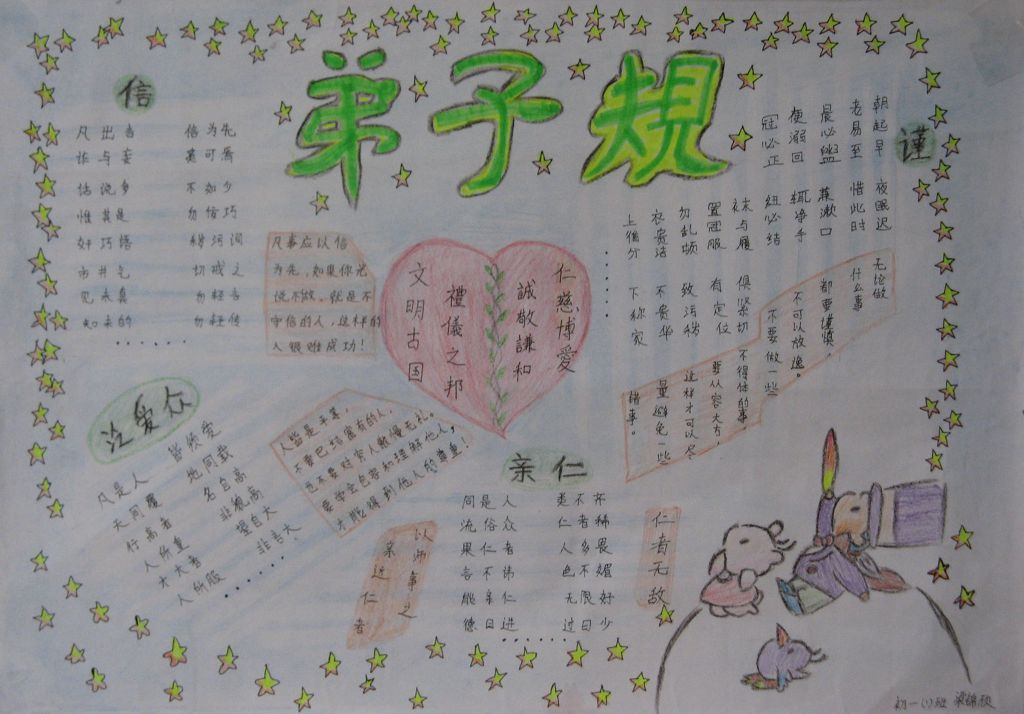 弟子規
信
凡出言 信为先
诈与妄 奚可焉
话说多 不如少
惟其是 勿佞巧
奸巧语 秽污词
市井气 切戒之
见未真 勿轻言
知未的 勿轻传
......
凡事应以信
为先,如果你光
说不做、就是不
守信的人,这样的
人很难成功!
文明古国
禮儀之邦
誠敬謙和
仁慈博愛
谨
朝起早 夜眠迟
老易至 惜此时
晨必盥 兼漱口
便溺回 辄净手
冠必正 纽必结
袜与履 俱紧切
置冠服 有定位
勿乱顿 致污秽
衣贵洁 不贵华
上循分 下称家
......
无论做
什么事
都要谨慎,
不可以放逸。
不要做一些
不得体的事
要从容大方,
这样才可以尽
量避免一些
错事。
泛爱众
凡是人 皆须爱
天同覆 地同载
行高者 名自高
人所重 非貌高
才大者 望自大
人所服 非言大
......
人皆是平等,
不要巴结富有的人,
也不要对穷人傲慢无礼。
要学会包容和理解他人,
才能得到他人的尊重!
亲仁
同是人 类不齐
流俗众 仁者稀
果仁者 人多畏
言不讳 色不媚
能亲仁 无限好
德日进 过日少
......
以师事之
亲近仁者
仁者无敌
初一(1)班